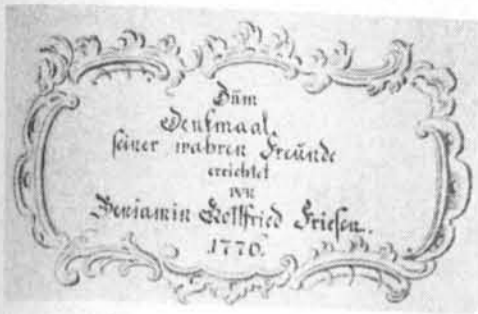 Zum
Denkmaal
seiner wahren Freünde
errichtet
von
Benjamin Gottfried Friesen.
1770.